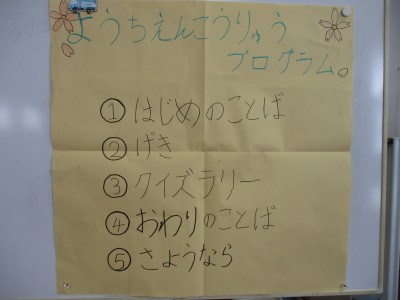 ようちえんこうりゅう
プログラム。
① はじめのことば
② げき
③ クイズラリー
④ おわりのことば
⑤ さようなら